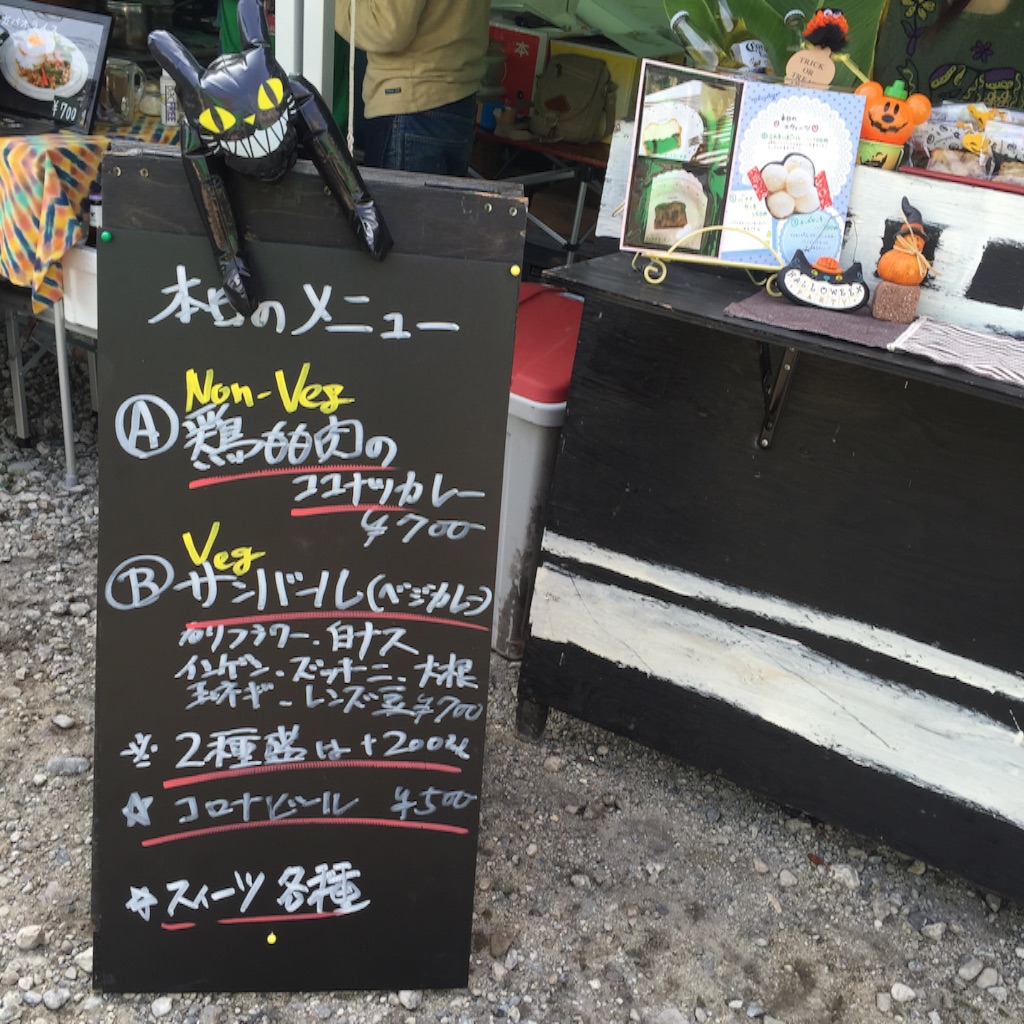 本日のメニュー
Non-Veg
Ⓐ鶏もも肉の
ココナッツカレー
¥700
Veg
Ⓑサンバール(ベジカレー)
カリフラワー・白ナス
インゲン・ズッキーニ・大根
玉ネギ・レンズ豆 ¥700
※ 2種盛は+200円
☆ コロナビール ¥500
☆ スイーツ 各種
¥700
本日の
スイーツ
TRICK
OR
TREAT
HALLOWEEN
PARTY
本